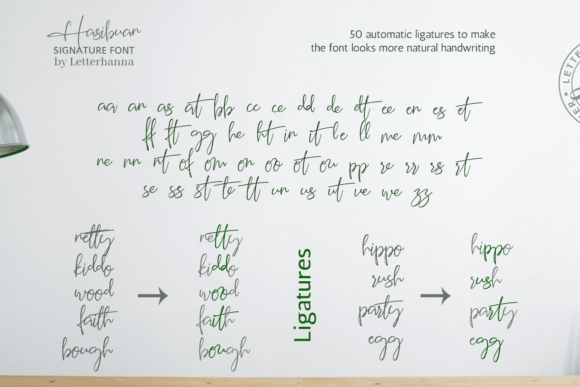 Hasibuan
SIGNATURE FONT
by Letterhanna
50 automatic ligatures to make
the font looks more natural handwriting
aa an as at bb cc ce dd de dt ee en es et
ff ft gg he ht in it le ll me mm
ne nn nt of om on oo ot ou pp re rr rs rt
se ss st te tt un us ut ve we zz
netty
kiddo
wood
faith
bough
→
netty
kiddo
wood
faith
bough
Ligatures
hippo
rush
party
egg
→
hippo
rush
party
egg